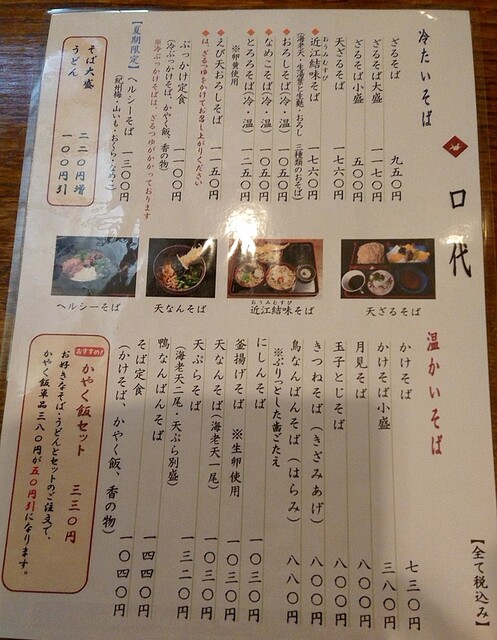 口代
【全て税込み】
冷たいそば
ざるそば 九五〇円
ざるそば大盛 一一七〇円
ざるそば小盛 五〇〇円
天ざるそば 一七六〇円
おうみむすび
近江結味そば 一七六〇円
(海老天・生湯葉と生麩・おろし 三種類のおそば)
おろしそば(冷・温) 一〇五〇円
なめこそば(冷・温) 一〇五〇円
とろろそば(冷・温) 一二五〇円
※卵黄使用
えび天おろしそば 一一五〇円
は、ざるつゆをかけてお召し上がりください
ぶっかけ定食 一一〇〇円
(冷ぶっかけそば、かやく飯、香の物)
※冷ぶっかけそばは、ざるつゆがかかっております
【夏期限定】ヘルシーそば 一三〇〇円
(紀州梅・山いも・おくら・なめこ)
そば大盛 二二〇円増
うどん 一〇〇円引
ヘルシーそば
天なんそば
おうみむすび
近江結味そば
天ざるそば
温かいそば
かけそば 七三〇円
かけそば小盛 三八〇円
月見そば 八〇〇円
玉子とじそば 八〇〇円
きつねそば(きざみあげ) 八〇〇円
鳥なんばんそば(はらみ) 八八〇円
※ぷりっとした歯ごたえ
にしんそば 一〇三〇円
釜揚げそば ※生卵使用 一〇三〇円
天なんそば(海老天一尾) 一〇三〇円
天ぷらそば 一三二〇円
(海老天二尾・天ぷら別盛)
鴨なんばんそば 一四四〇円
そば定食 一〇四〇円
(かけそば、かやく飯、香の物)
おすすめ!
かやく飯セット 三三〇円
お好きなそば・うどんとセットのご注文で、
かやく飯単品三八〇円が五〇円引になります。